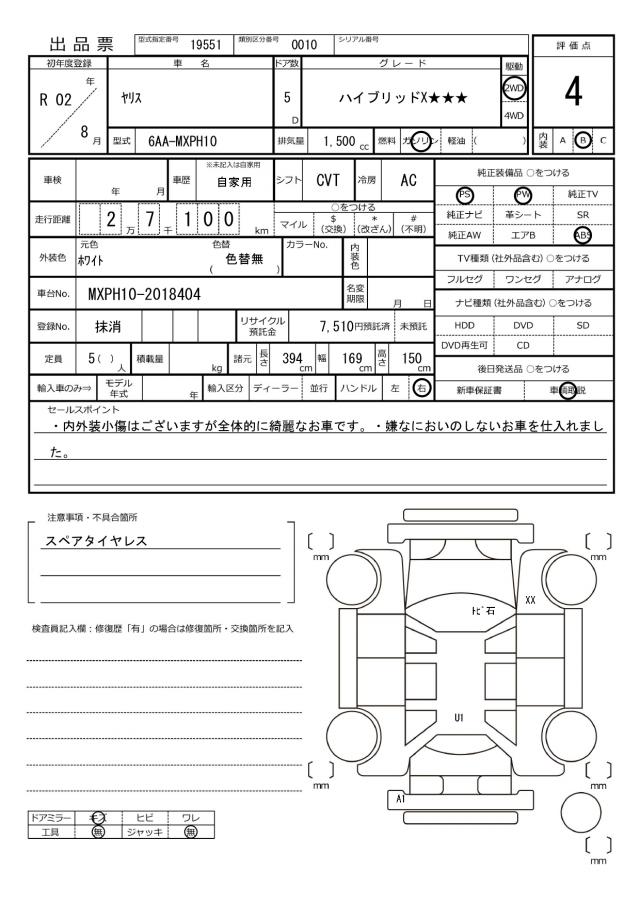 出品票 型式指定番号 19551 類別区分番号 0010 シリアル番号
評価点
4
初年度登録 車名 ドア数 グレード 駆動
R 02 年 8 月
ヤリス 5 D ハイブリッドX★★★ 2WD 4WD
型式 6AA-MXPH10 排気量 1,500 cc 燃料 ガソリン 軽油 ( )
内装 A B C
車検 年 月 車歴 ※未記入は自家用 自家用 シフト CVT 冷房 AC
走行距離 2 万 7 千 1 0 0 km
○をつける
マイル $(交換) *(改ざん) #(不明)
外装色 元色 ホワイト 色替 ( 色替無 ) カラーNo. 内装色
車台No. MXPH10-2018404 名変期限 月 日
登録No. 抹消 リサイクル預託金 7,510円預託済 未預託
定員 5 ( ) 人 積載量 kg 諸元 長さ 394 cm 幅 169 cm 高さ 150 cm
輸入車のみ⇒ モデル年式 年 輸入区分 ディーラー 並行 ハンドル 左 右
純正装備品 ○をつける
PS PW 純正TV
純正ナビ 革シート SR
純正AW エアB ABS
TV種類 (社外品含む) ○をつける
フルセグ ワンセグ アナログ
ナビ種類 (社外品含む) ○をつける
HDD DVD SD
DVD再生可 CD
後日発送品 ○をつける
新車保証書 車輌取説
セールスポイント
・内外装小傷はございますが全体的に綺麗なお車です。・嫌なにおいのしないお車を仕入れまし
た。
注意事項・不具合箇所
スペアタイヤレス
検査員記入欄：修復歴「有」の場合は修復箇所・交換箇所を記入
〔 〕 mm 〔 〕 mm
XX
トビ石
U1
〔 〕 mm 〔 〕 mm
A1
〔 〕 mm
ドアミラー キズ ヒビ ワレ
工具 無 ジャッキ 無